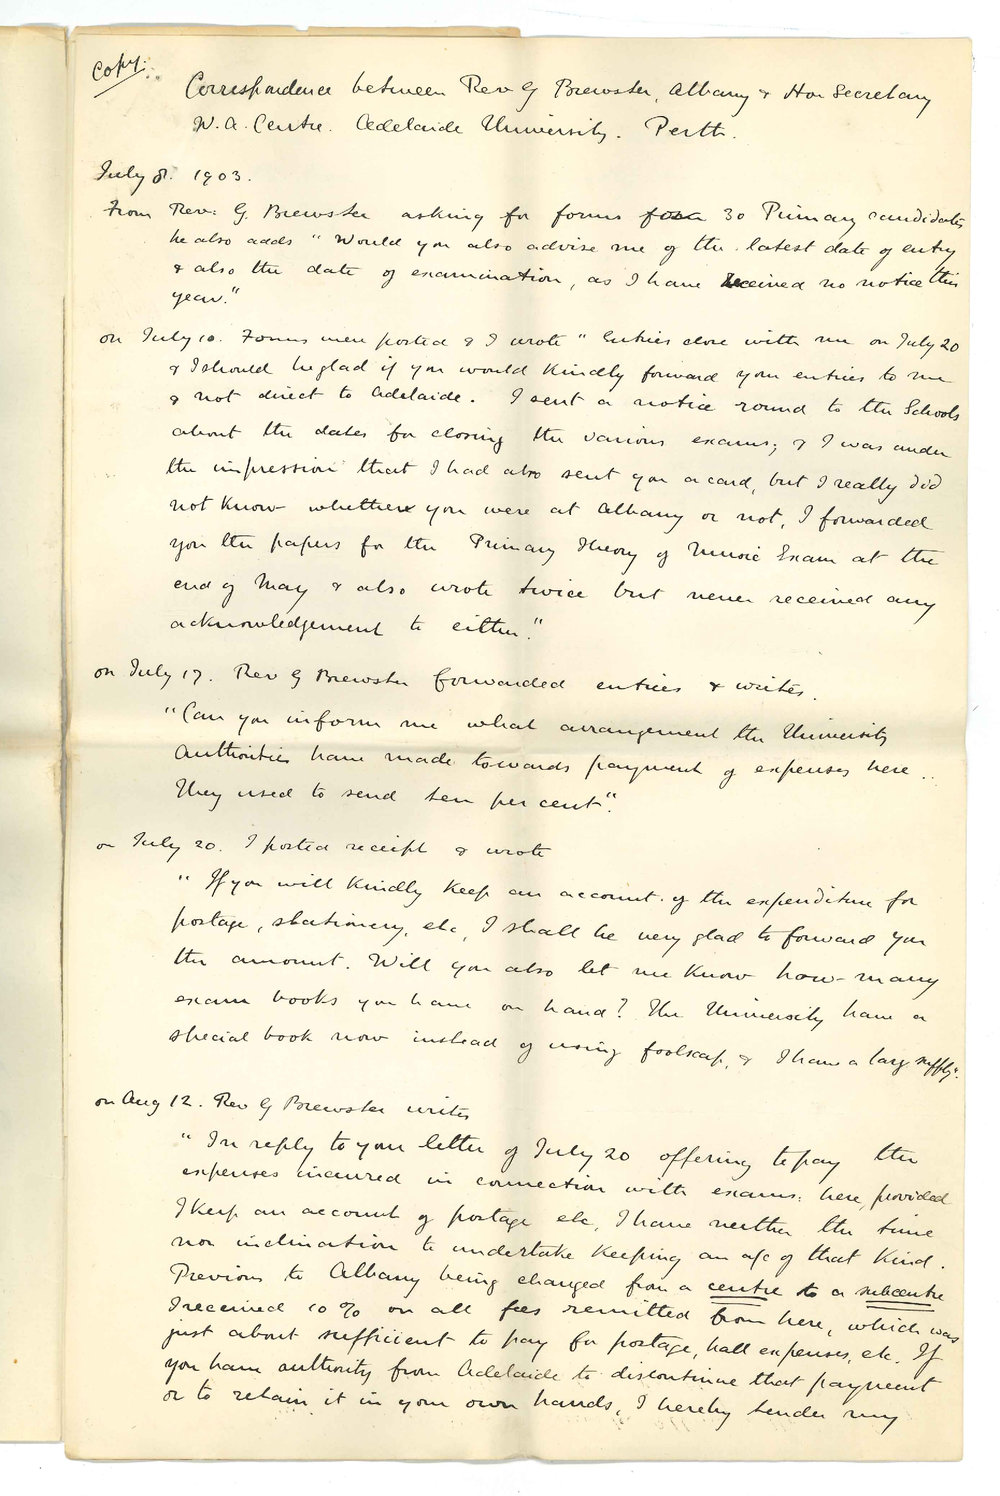 Copy.
Correspondence between Rev G Brewster, Albany & Hon Secretary
W.A. Centre. Adelaide University. Perth.
July 8. 1903.
From Rev: G. Brewster asking for forms for 30 Primary candidates
he also adds "Would you also advise me of the latest date of entry
& also the date of examination, as I have received no notice this
year."
on July 10. Forms were posted & I wrote "Entries close with me on July 20
& I should be glad if you would kindly forward your entries to me
& not direct to Adelaide. I sent a notice round to the Schools
about the dates for closing the various exams; & I was under
the impression that I had also sent you a card, but I really did
not know whether you were at Albany or not, I forwarded
you the papers for the Primary Theory of Music Exam at the
end of May & also wrote twice but never received any
acknowledgement to either."
on July 17. Rev G Brewster forwarded entries & writes.
"Can you inform me what arrangement the University
Authorities have made towards payment of expenses here..
They used to send ten per cent".
on July 20. I posted receipt & wrote
"If you will kindly keep an account of the expenditure for
postage, stationery, etc, I shall be very glad to forward you
the amount. Will you also let me know how many
exam books you have on hand? The University have a
special book now instead of using foolscap, & I have a large supply".
on Aug 12. Rev G Brewster writes
"In reply to your letter of July 20 offering to pay the
expenses incurred in connection with exams: here, provided
I keep an account of postage etc, I have neither the time
nor inclination to undertake keeping an a/c of that kind.
Previous to Albany being changed from a centre to a subcentre
I received 10% on all fees remitted from here, which was
just about sufficient to pay for postage, hall expenses, etc. If
you have authority from Adelaide to discontinue that payment
or to retain it in your own hands, I hereby tender my